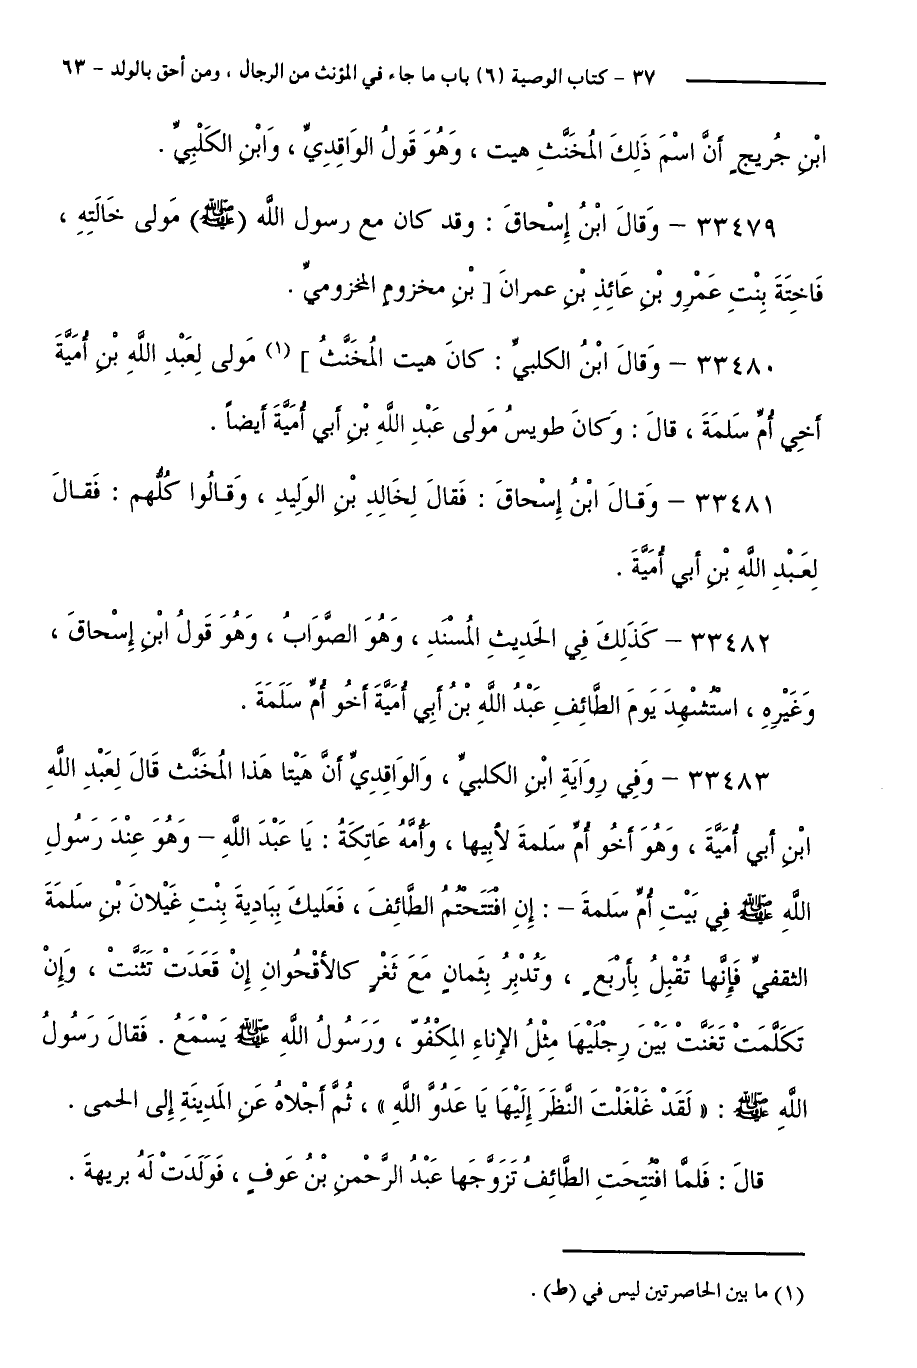 ٣٧ - كتاب الوصية (٦) باب ما جاء في المؤنث من الرجال ، ومن أحق بالولد - ٦٣
ابْنِ جُريجٍ أَنَّ اسْمَ ذَلِكَ المُخَنَّثِ هيت ، وَهُوَ قَولُ الوَاقِدِيِّ ، وَابْنِ الكَلْبِيِّ .
٣٣٤٧٩ - وَقالَ ابْنُ إِسْحاقَ : وقد كان مع رسول اللَّه (ﷺ) مَولى خَالَتِهِ ،
فَاخِتَةَ بِنْتِ عَمْرِو بْنِ عَائِذِ بْنِ عمرانَ [ بْنِ مخزومٍ المخزوميِّ .
٣٣٤٨٠ - وَقالَ ابْنُ الكلبيِّ : كانَ هيت المُخَنَّثُ ] (١) مَولى لِعَبْدِ اللَّهِ بْنِ أُمَيَّةَ
أَخِي أُمِّ سَلَمَةَ ، قالَ : وَكانَ طويسُ مَولى عَبْدِ اللَّهِ بْنِ أبي أُمَيَّةَ أيضاً .
٣٣٤٨١ - وَقالَ ابْنُ إِسْحاقَ : فَقالَ لِخَالِدِ بْنِ الوَلِيدِ ، وَقالُوا كُلُّهم : فَقالَ
لِعَبْدِ اللَّهِ بْنِ أبي أُمَيَّةَ .
٣٣٤٨٢ - كَذَلِكَ فِي الحَدِيثِ المُسْنَدِ ، وَهُوَ الصَّوَابُ ، وَهُوَ قَولُ ابْنِ إِسْحاقَ ،
وَغَيْرِهِ ، اسْتُشْهِدَ يَومَ الطَّائِفِ عَبْدُ اللَّهِ بْنُ أَبِي أُمَيَّةَ أَخُو أُمِّ سَلَمَةَ .
٣٣٤٨٣ - وَفِي رِوَايَةِ ابْنِ الكلبيِّ ، وَالوَاقِدِيِّ أَنَّ هَيْتا هَذا المُخَنَّث قَالَ لِعَبْدِ اللَّهِ
ابْنِ أبي أُمَيَّةَ ، وَهُوَ أَخُو أُمِّ سَلمةَ لأبيها ، وَأُمُّهُ عَاتِكَةُ : يَا عَبْدَ اللَّهِ - وَهُوَ عِنْدَ رَسُولِ
اللَّهِ ﷺ فِي بَيْتِ أُمِّ سَلمةَ - : إِنِ افْتَتَحْتُمُ الطَّائِفَ ، فَعَليكَ بِبَادِيةَ بِنْتِ غَيْلانَ بْنِ سَلمَةَ
الثقفيِّ فَإِنَّها تُقْبِلُ بِأَرْبَعٍ ، وَتُدْبِرُ بِثَمانٍ مَعَ ثَغْرٍ كالأَقْحُوانِ إِنْ قَعَدَتْ تَثَنَّتْ ، وَإِنْ
تَكَلَّمَتْ تَغَنَّتْ بَيْنَ رِجْلَيْهَا مِثْلُ الإناءِ المكْفُوّ ، ورَسُولُ اللَّهِ ﷺ يَسْمَعُ . فَقالَ رَسُولُ
اللَّهِ ﷺ : « لَقَدْ غَلْغَلْتَ النَّظَرَ إِلَيْهَا يَا عَدُوَّ اللَّهِ » ، ثُمَّ أَجْلاهُ عَنِ المَدِينَةِ إِلى الحمى .
قالَ : فَلمَّا افْتُتِحَتِ الطَّائِفُ تَزَوَّجَها عَبْدُ الرَّحْمنِ بْنُ عَوفٍ ، فَوَلَدَتْ لَهُ بريهةَ .
(١) ما بين الحاصرتين ليس في (ط) .